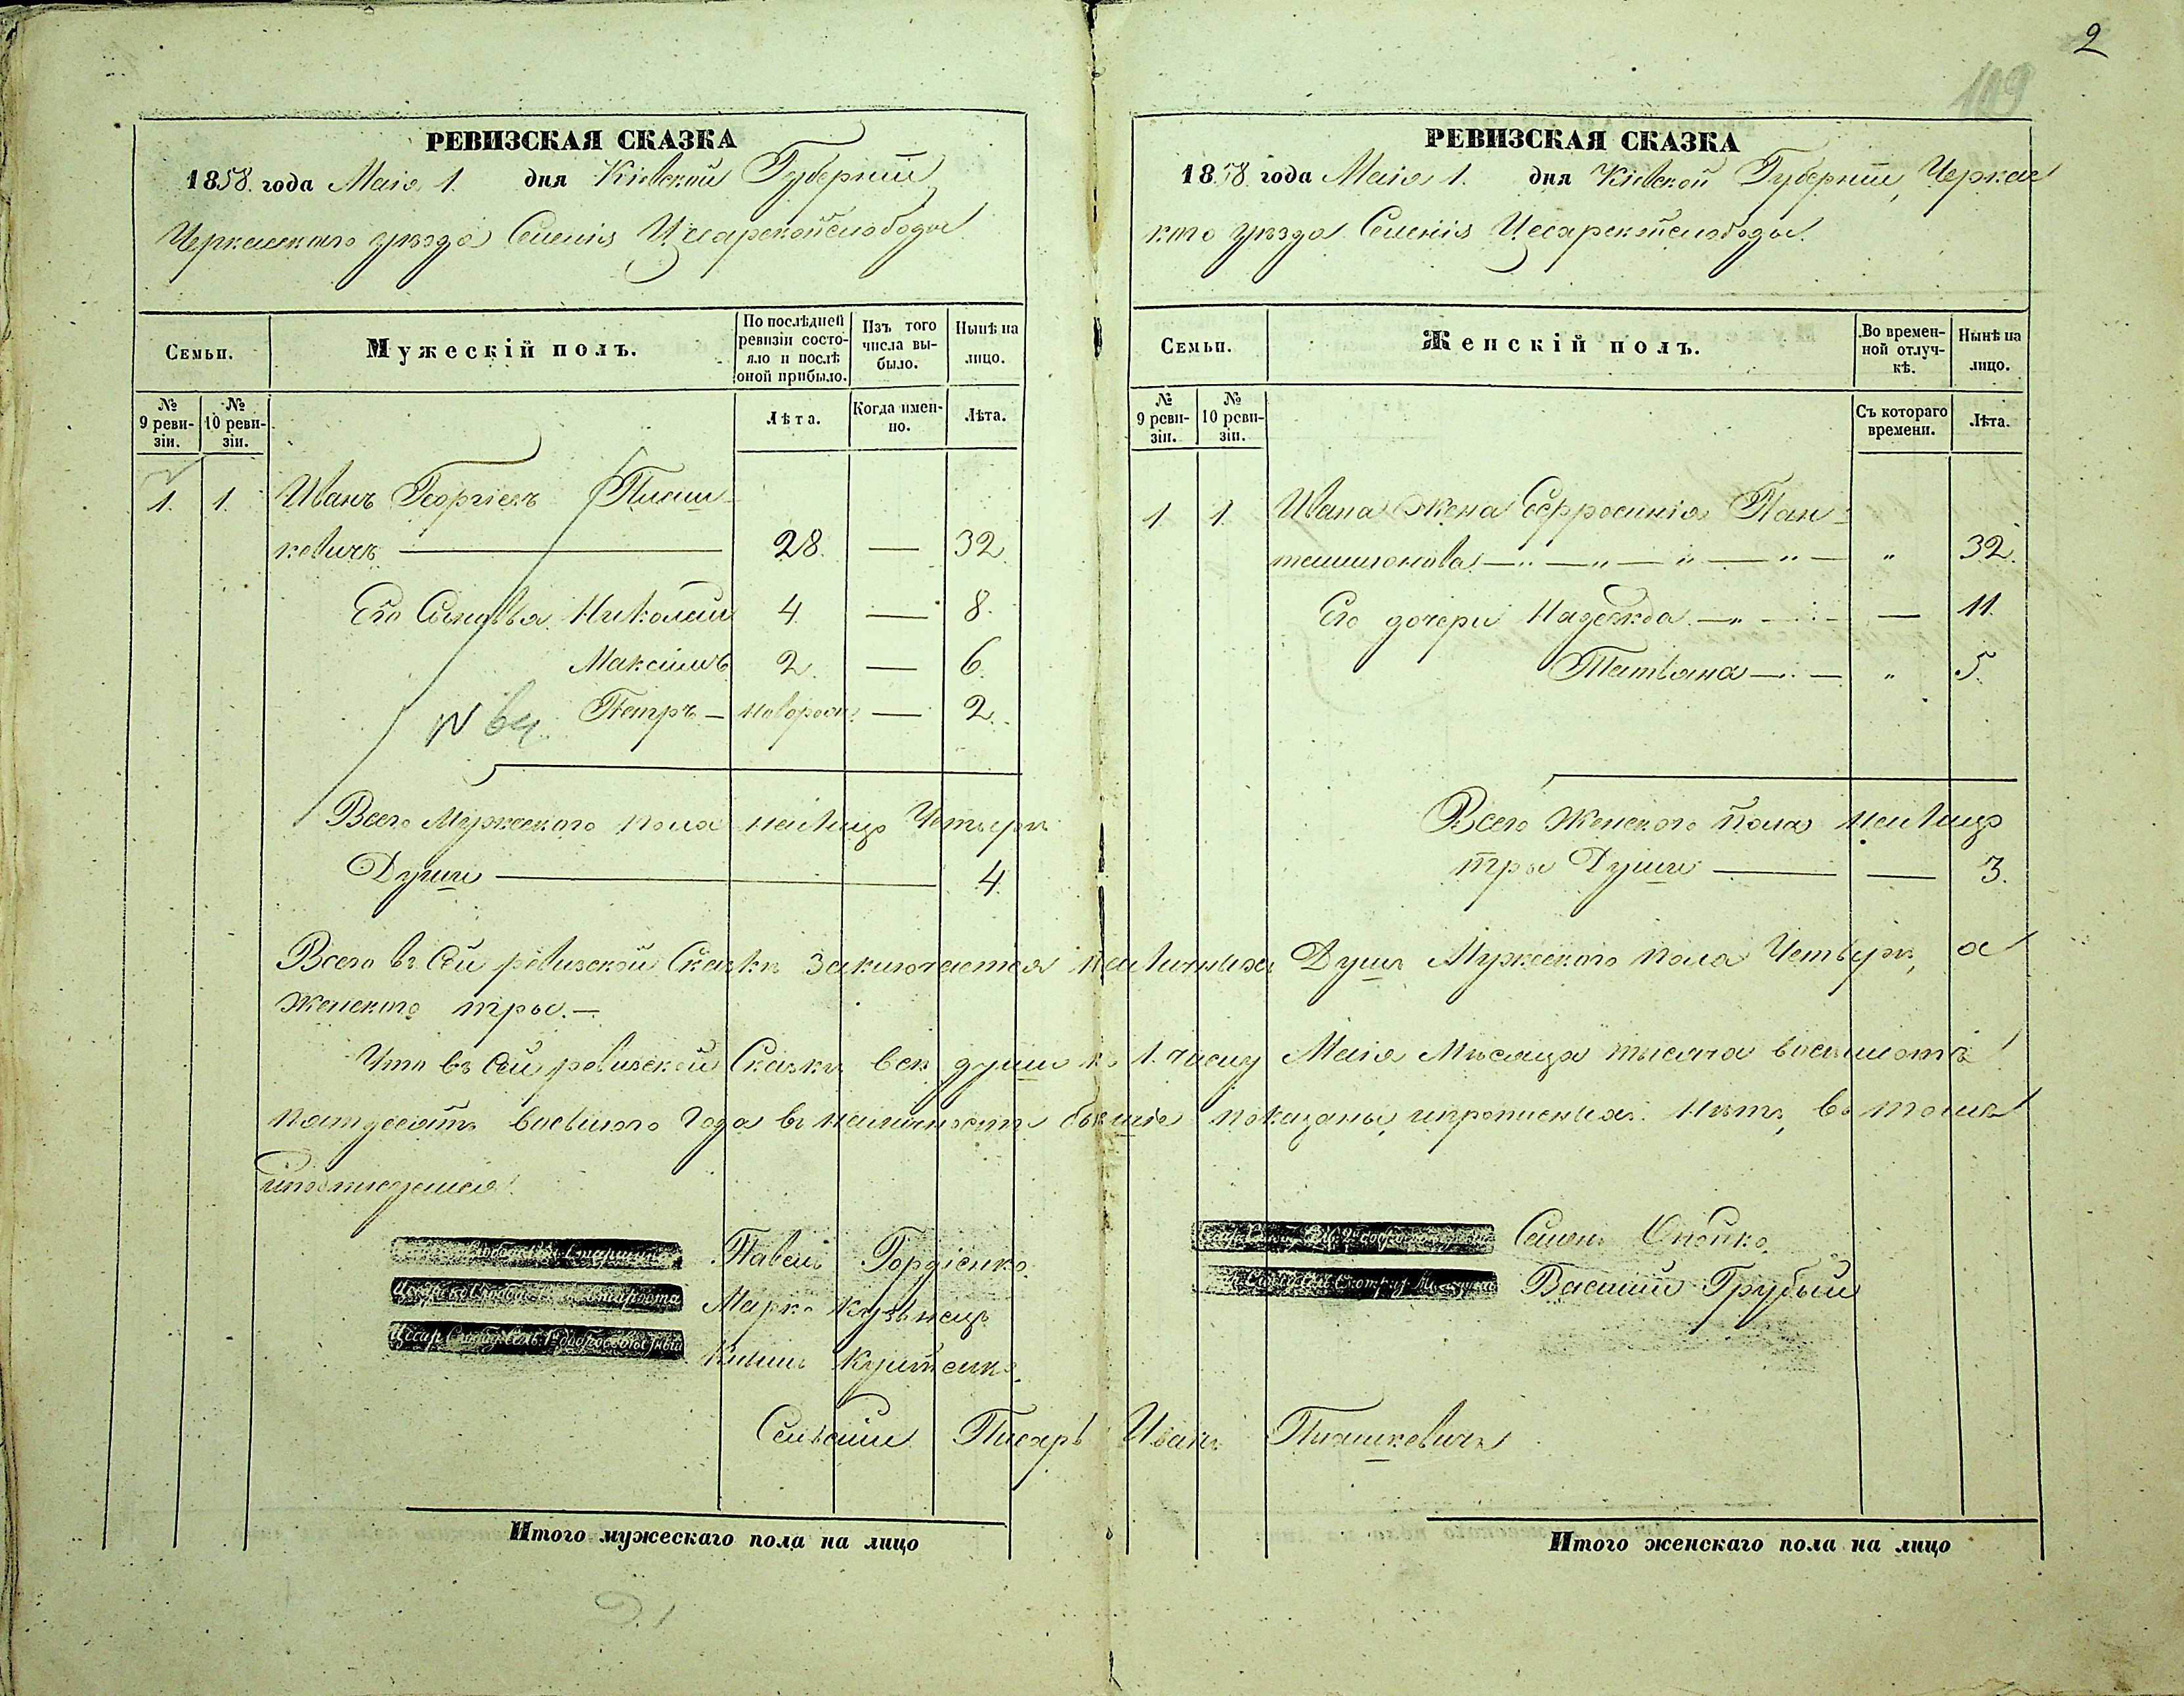 2
109
РЕВИЗСКАЯ СКАЗКА
1858. года Маія 1. дня Кіевской Губерніи
Черкаскаго уѣзда Селенія Цесарскойслободы
Семьи.
Мужескій полъ.
По послѣдней ревизіи состояло и послѣ оной прибыло.
Изъ того числа выбыло.
Нынѣ на лицо.
№ 9 ревизіи.
№ 10 ревизіи.
Лѣта.
Когда именно.
Лѣта.
1. 1. Иванъ Георгіевъ Пиаш-
кевичъ — 28. — 32
Его Сыновья Николай 4 — 8.
Максимъ 2. — 6.
Петръ — новорож. — 2.
Всего Мужескаго пола на Лицо Четыре
Души — 4.
РЕВИЗСКАЯ СКАЗКА
1858. года Маія 1. дня Кіевской Губерніи, Черкас
каго уѣзда Селенія Цесарскойслободы.
Семьи.
Женскій полъ.
Во временной отлучкѣ.
Нынѣ на лицо.
№ 9 ревизіи.
№ 10 ревизіи.
Съ котораго времени.
Лѣта.
1 1. Ивана жена Ефросинія Пан-
телимонова — " — " — " — " — " 32.
Его дочери Надежда — " — — 11.
Татьяна — — " 5.
Всего Женского Пола на Лицо
тры Души — — 3.
Всего въ Сей ревизской Сказкѣ заключается наличныхъ Душъ Мужеского пола Четыре, а
женского тры. —
Что въ Сей ревизской Сказкѣ всѣ души къ 1. числу Маія Мѣсяца тысяча восемьсотъ
пятдесятъ восьмого года въ наличности бывшіе показаны, ипрописныхъ нѣтъ, въ томъ
иподписуемся
Павелъ Гордіенко.
Марко Кузьнецъ
Семенъ
Василий Грубый
Сельскій Писарь Иванъ Пиашкевичъ
Итого мужескаго пола на лицо
Итого женскаго пола на лицо